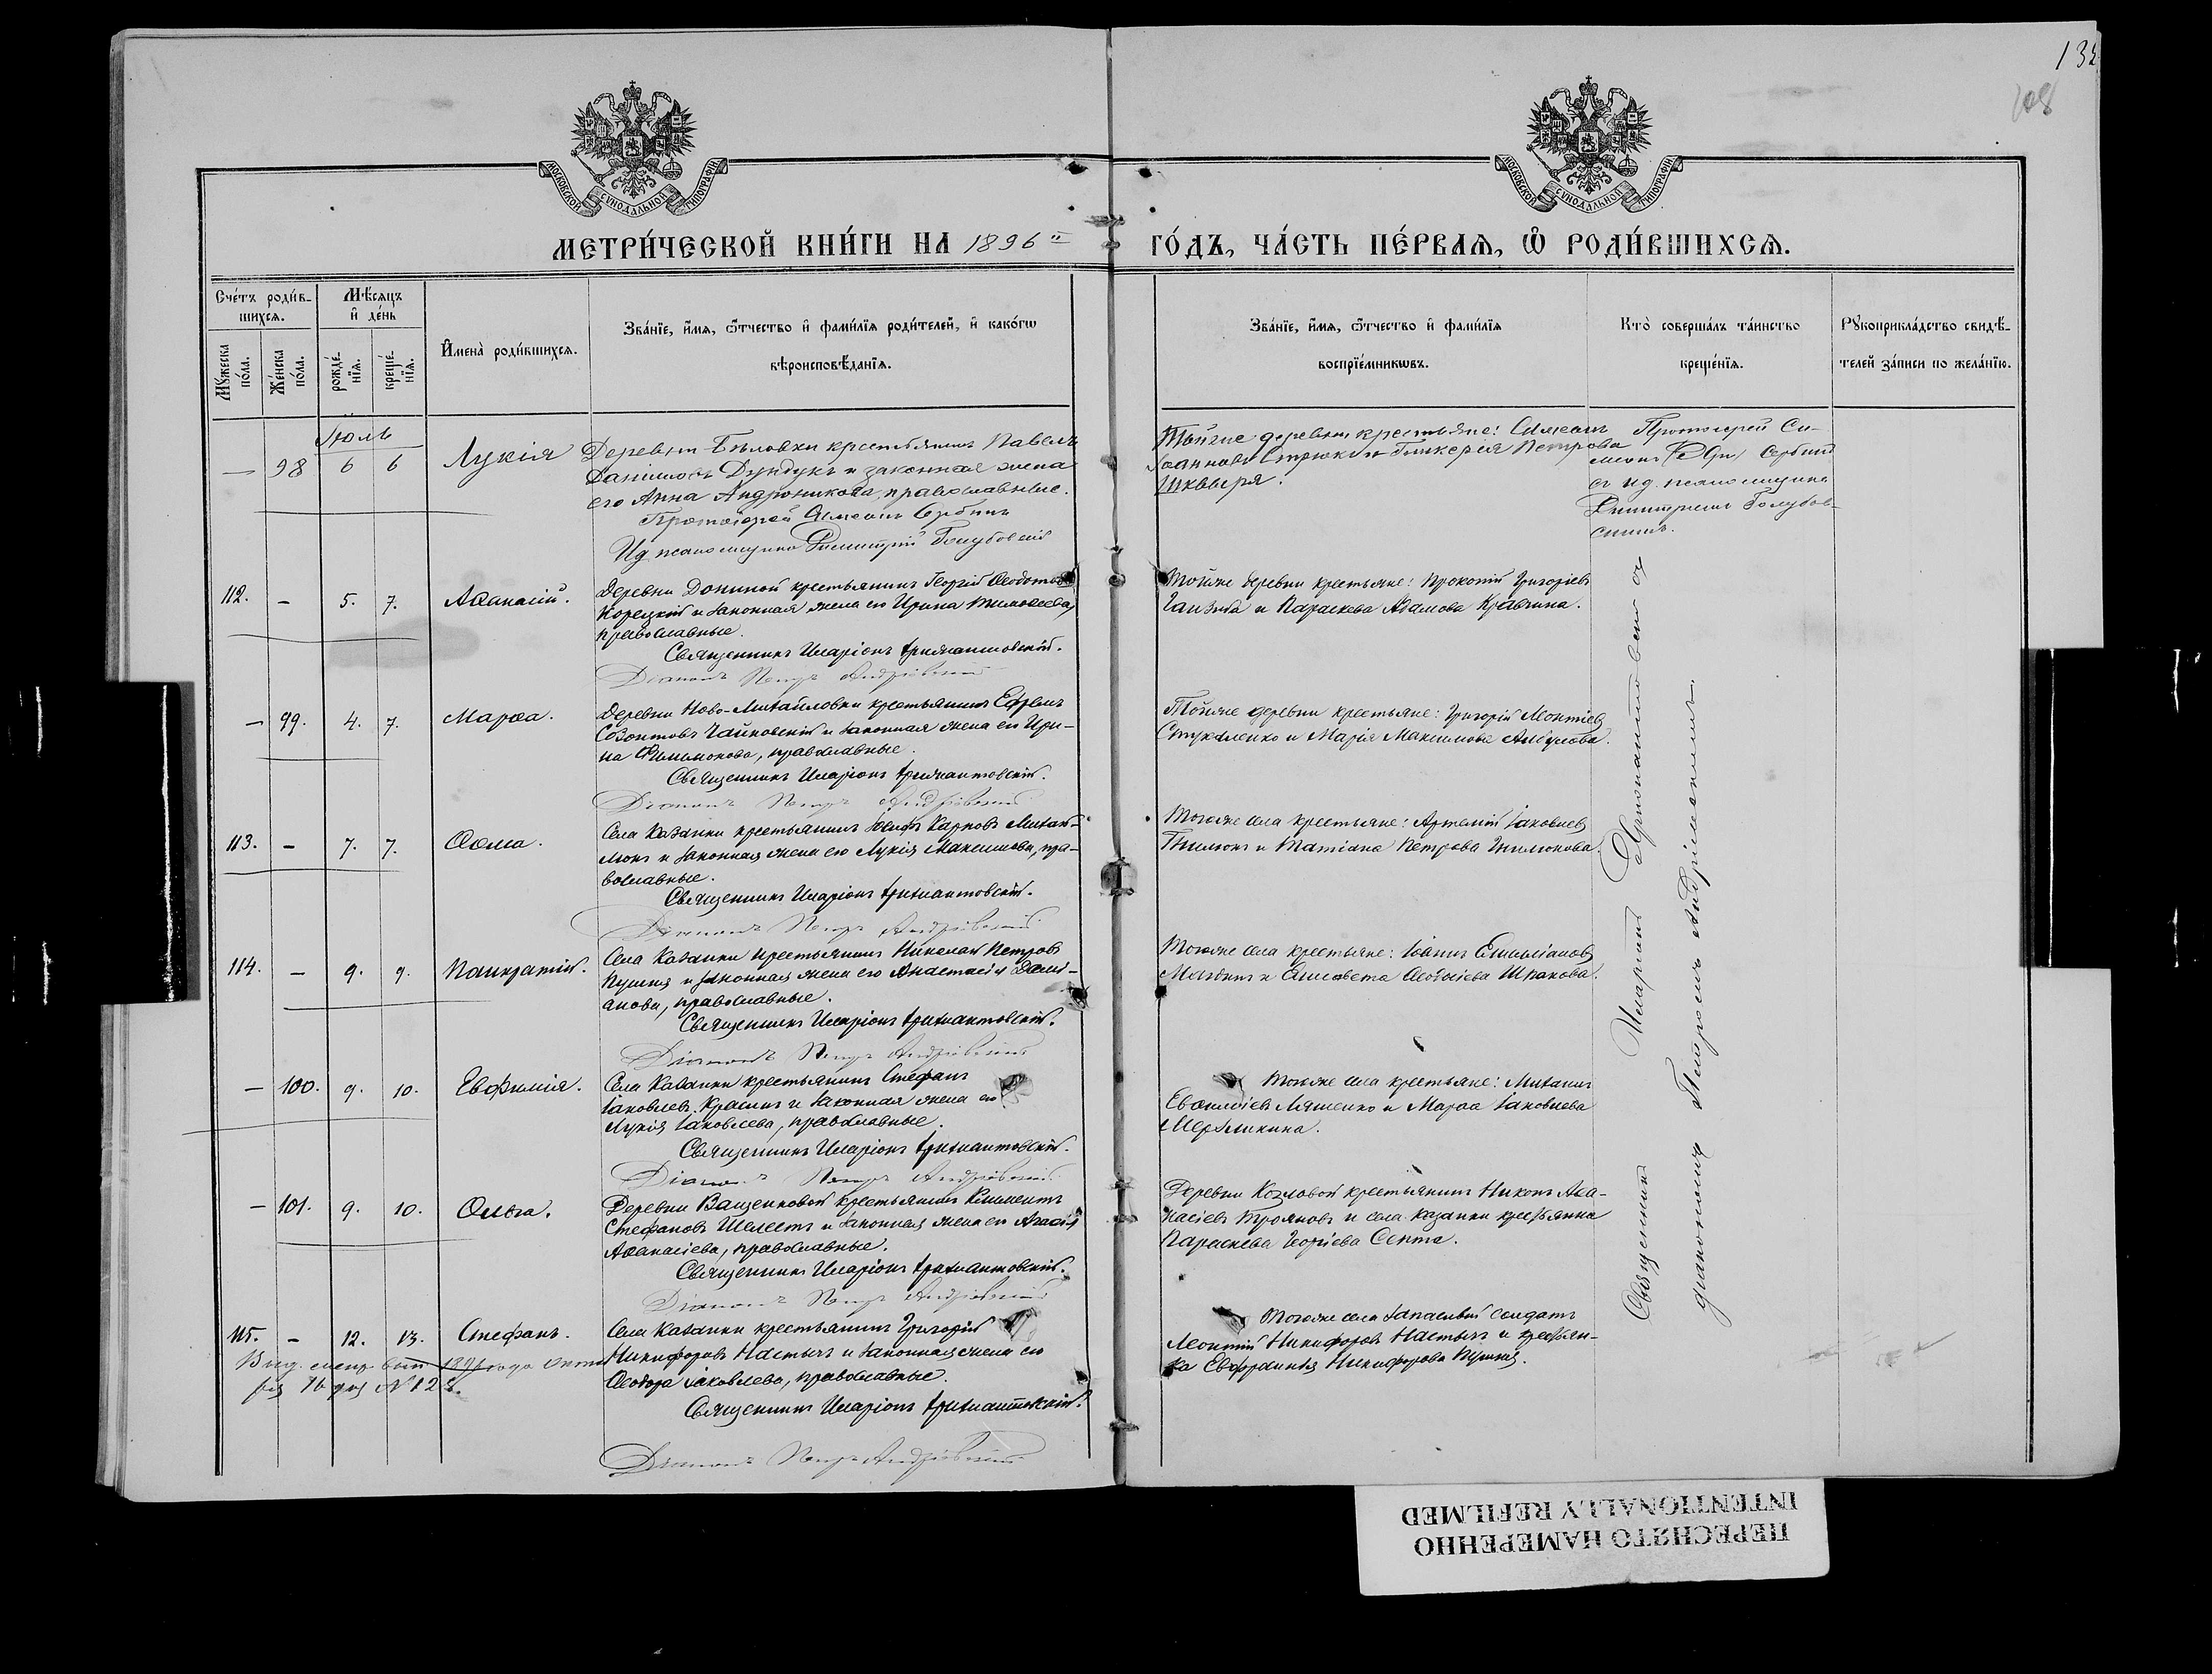 132
108
МОСКОВСКОЙ СѴНОДАЛЬНОЙ ТИПОГРАФІИ
МОСКОВСКОЙ СѴНОДАЛЬНОЙ ТИПОГРАФІИ
МЕТРИ́ЧЕСКОЙ КНИ́ГИ НА 1896 ГО́ДЪ, ЧА́СТЬ ПЕ́РВАЯ, Ѡ РОДИ́ВШИХСѦ.
Сче́тъ роди́в-
шихсѧ.
Мѣ́сяцъ
и҆ де́нь
Мꙋ́жеска
по́ла.
Же́нска
по́ла.
рожде́-
нїѧ.
креще́-
нїѧ.
И҆мена̀ роди́вшихсѧ.
Зва́нїе, и҆́мѧ, ѻ҆́тчество и҆ фами́лїѧ роди́телей, и҆ како́гѡ
вѣроисповѣ́данїѧ.
Зва́нїе, и҆́мѧ, ѻ҆́тчество и҆ фами́лїѧ
воспрїе́мникѡвъ.
Кто̀ соверша́лъ та́инство
креще́нїѧ.
Рꙋкоприкла́дство свидѣ́-
телей за́писи по жела́нїю.
Іюль
— 98 6 6 Лукія
Деревни Бѣловки крестьянинъ Павелъ
Даніиловъ Дундукъ и законная жена
его Анна Андроникова, православные.
Протоіерей Симеонъ Сербинъ
Ид псаломщика Димитрій Голубовскій
Тойже деревни крестьяне: Симеонъ
Іоанновъ Стрюкъ и Гликерія Петрова
Шквыря.
Протоіерей Си-
меонъ Сербинъ
съ ид. псаломщика
Димитріемъ Голубов-
скимъ.
112. — 5. 7. Аѳанасій.
Деревни Дониной крестьянинъ Георгій Ѳеодотовъ
Корецкій и законная жена его Ирина Тимоѳеева,
православные.
Священникъ Иларіонъ Хрисанѳовскій.
Діаконъ Петръ Андріевскій
Тойже деревни крестьяне: Прокопій Григоріевъ
и Параскева Адамова Кравчина.
— 99. 4. 7. Марѳа.
Деревни Ново-Михайловки крестьянинъ Ефремъ
Созонтовъ Чайковскій и законная жена его Ири-
на Филимонова, православные.
Священникъ Иларіонъ Хрисанѳовскій.
Діаконъ Петръ Андріевскій
Тойже деревни крестьяне: Григорій Леонтіевъ
Стукаленко и Марія Максимова
113. — 7. 7. Ѳома.
Села Казанки крестьянинъ Іосифъ Карповъ Михай-
люкъ и законная жена его Лукія Максимова, пра-
вославные.
Священникъ Иларіонъ Хрисанѳовскій.
Діаконъ Петръ Андріевскій
Тогоже села крестьяне: Артемій Іаковлевъ
и Татіана Петрова
114. — 9. 9. Панкратій.
Села Казанки крестьянинъ Николай Петровъ
Кушния и законная жена его Анастасія Дамі-
анова, православные.
Священникъ Иларіонъ Хрисанѳовскій.
Діаконъ Петръ Андріевскій
Тогоже села крестьяне: Іоаннъ Емиліановъ
и Елисавета Шрамова.
— 100. 9. 10. Евфимія.
Села Казанки крестьянинъ Стефанъ
Іаковлевъ Красинъ и законная жена его
Лукія Іаковлева, православные.
Священникъ Иларіонъ Хрисанѳовскій.
Діаконъ Петръ Андріевскій
Тогоже села крестьяне: Михаилъ
Евѳиміевъ Ляшенко и Марѳа Іаковлева
— 101. 9. 10. Ольга.
Деревни Ващенковой крестьянинъ Климентъ
Стефановъ Шелестъ и законная жена его Агаѳія
Аѳанасіева, православные.
Священникъ Иларіонъ Хрисанѳовскій.
Діаконъ Петръ Андріевскій
Деревни Козловой крестьянинъ Никонъ Аѳа-
насіевъ Трояновъ и села Казанки крестьянка
Параскева Георгіева Септа.
115. — 12. 13. Стефанъ.
Выд. метр. вып. 1896 года Октя
бря 16 дня №128.
Села Казанки крестьянинъ Григорій
Никифоровъ Настычъ и законная жена его
Ѳеодора Іаковлева, православные.
Священникъ Иларіонъ Хрисанѳовскій.
Діаконъ Петръ Андріевскій
Тогоже села запасный солдатъ
Леонтій Никифоровъ Настычъ и крестьян-
ка Евфросинія Никифорова Кушния.
Священникъ Иларіонъ Хрисанѳовскій съ
діакономъ Петромъ Андріевскимъ.
ПЕРЕСНЯТО НАМЕРЕННО
INTENTIONALLY REFILMED